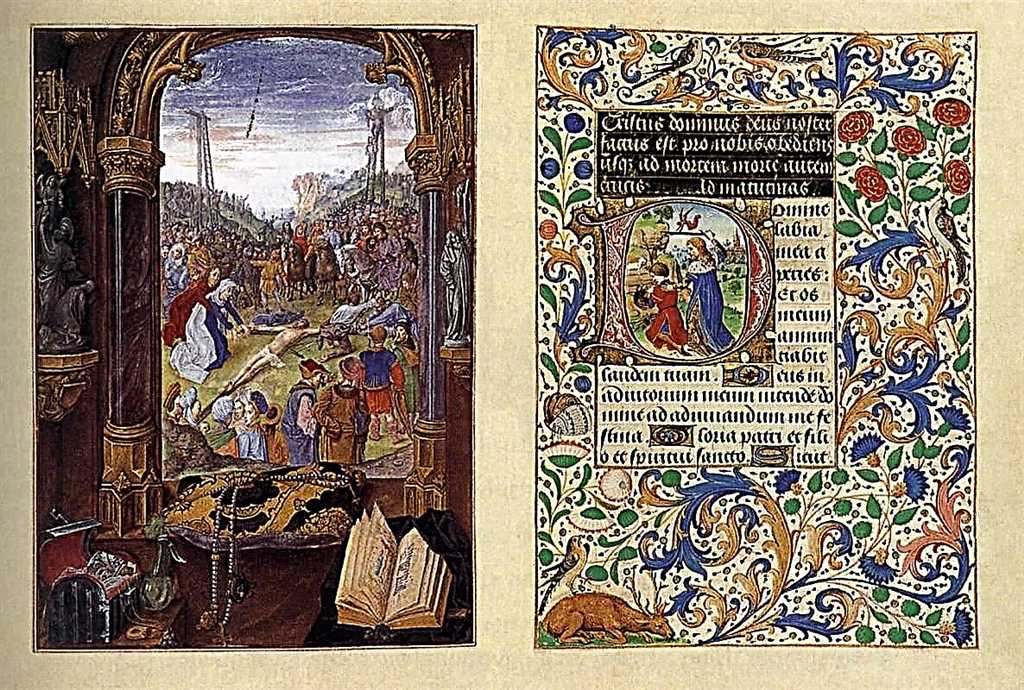 Cristus dominus deus noster
factus est pro nobis obediens
usqꝫ ad mortem morte autem
crucis Ad matutinas
Domine
labia
mea a
peries:
Et os
meum
annun
tiabit
laudem tuam. Deus in
adiutorium meum intende do
mine ad adiuvandum me fe
stina. Gloria patri et fili
o et spiritui sancto. Sicut